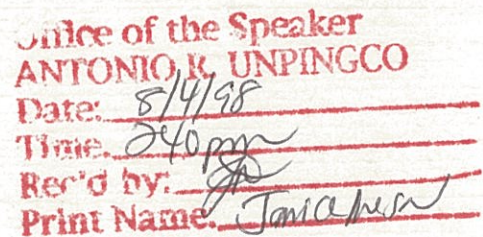 Office of the Speaker
ANTONIO R. UNPINGCO
Date: 8/4/98
Time: 240pm
Rec'd by:
Print Name: